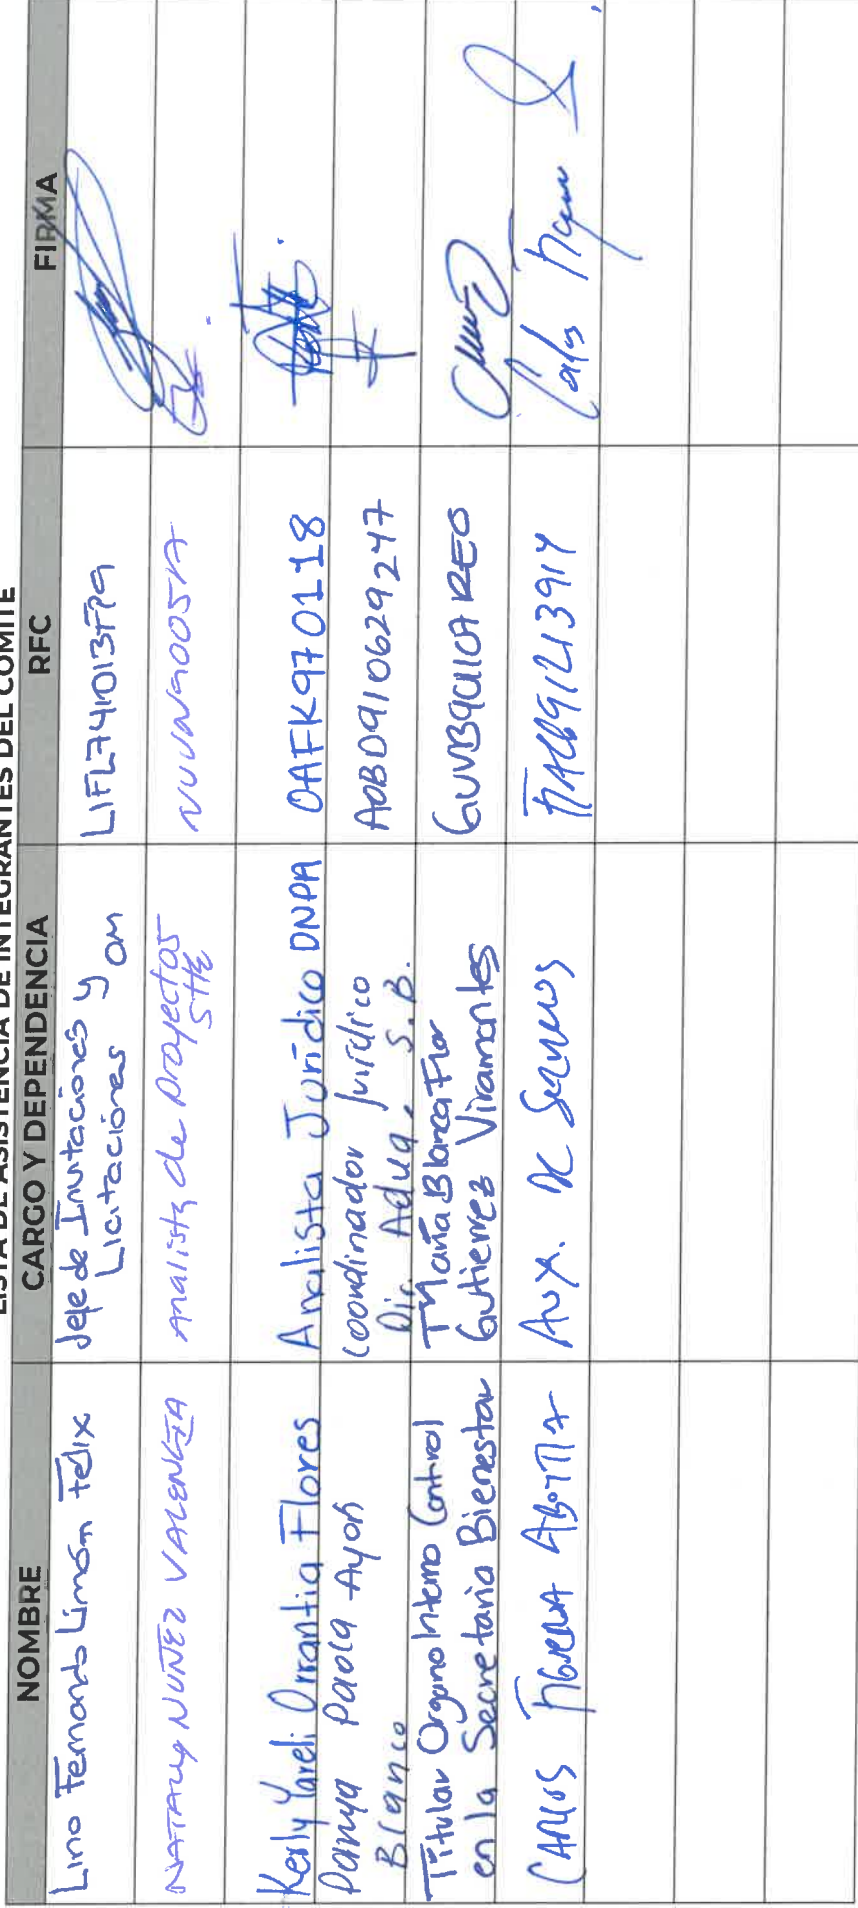 LISTA DE ASISTENCIA DE INTEGRANTES DEL COMITÉ
NOMBRE CARGO Y DEPENDENCIA RFC FIRMA
Lino Fernando Limón Felix Jefe de Invitaciones y
Licitaciones OM LIFL741013FP9
NATALY NUÑEZ VALENCIA Analista de proyectos
SHE NUVN90051A
Kerly Yareli Orrantia Flores Analista Jurídico DNPA OAFK970118
Danya Paola Ayon
Blanco Coordinador Jurídico
Dir. Adua. S.B. AOBD910629247
Titular Organo Interno Control
en la Secretaria Bienestar Maria Blanca Flor
Gutierrez Viramontes
CARLOS AUX. DE
Carlos